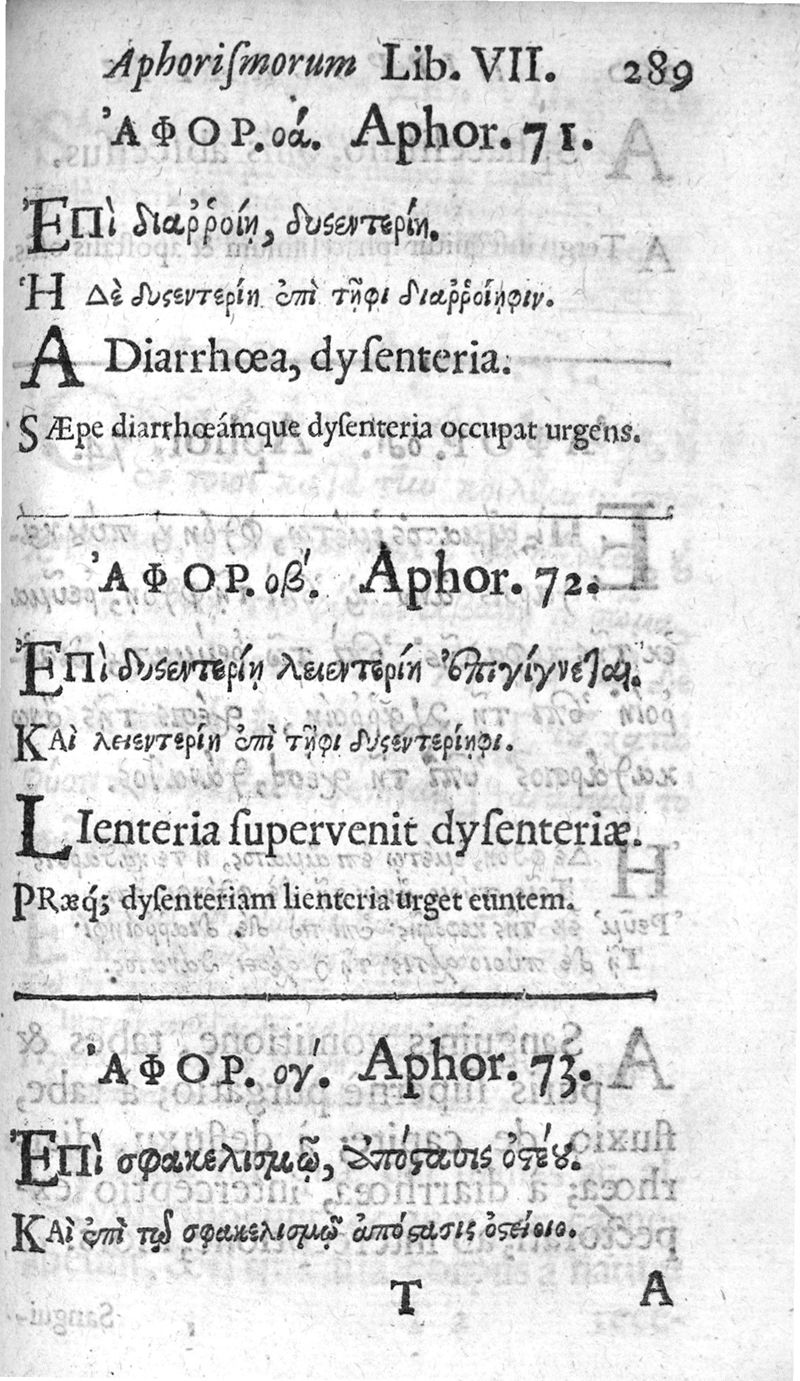 Aphoriſmorum Lib. VII. 289
ἈΦΟΡ. οά. Aphor. 71.
Ἐπὶ διαῤῥοίῃ, δυσεντερίη.
Ἡ Δὲ δυσεντερίη ἐπὶ τῇφι διαῤῥοίηφιν.
A Diarrhœa, dyſenteria.
SÆpe diarrhœámque dyſenteria occupat urgens.
ἈΦΟΡ. οβ΄. Aphor. 72.
Ἐπὶ δυσεντερίῃ λειεντερίη ἐπιγίγνεται.
Καὶ λειεντερίη ἐπὶ τῇφι δυσεντερίηφι.
LIenteria ſupervenit dyſenteriæ.
PRæq́; dyſenteriam lienteria urget euntem.
ἈΦΟΡ. ογ΄. Aphor. 73.
Ἐπὶ σφακελισμῷ, ἀπόστασις ὀστέου.
Καὶ ἐπὶ τῷ σφακελισμῷ ἀπόστασις ὀστείοιο.
T A